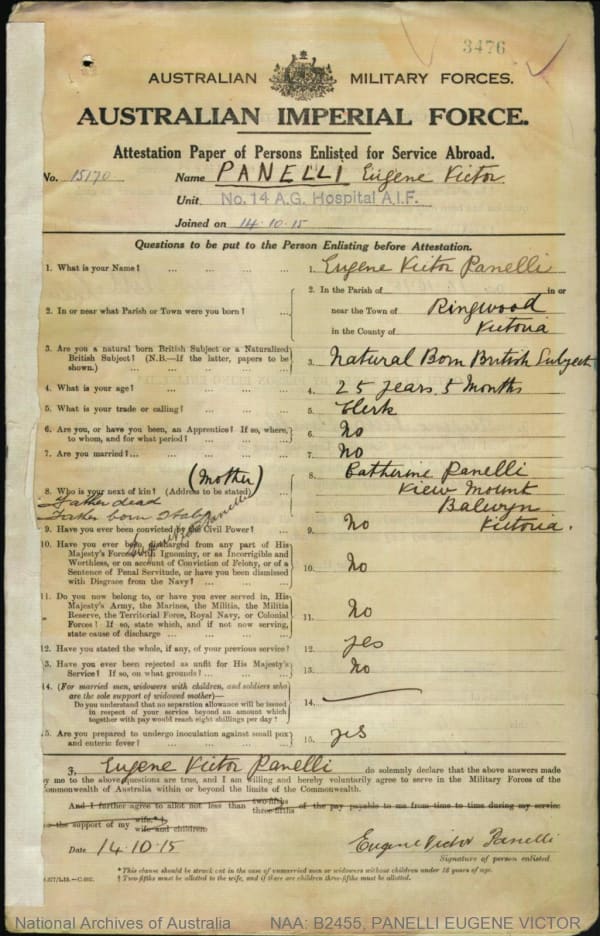 3476
AUSTRALIAN MILITARY FORCES.
AUSTRALIAN IMPERIAL FORCE.
Attestation Paper of Persons Enlisted for Service Abroad.
No. 15170 Name PANELLI Eugene Victor
Unit No. 14 A.G. Hospital A.I.F.
Joined on 14.10.15
Questions to be put to the Person Enlisting before Attestation.
1. What is your Name? ... ... ... ... 1. Eugene Victor Panelli
2. In or near what Parish or Town were you born? ... 2. In the Parish of in or
near the Town of Ringwood
in the County of Victoria
3. Are you a natural born British Subject or a Naturalized
British Subject? (N.B.—If the latter, papers to be
shown.) ... ... ... ... 3. Natural Born British Subject
4. What is your age? ... ... ... ... 4. 25 years 5 months
5. What is your trade or calling? ... ... ... 5. Clerk
6. Are you, or have you been, an Apprentice? If so, where,
to whom, and for what period? ... ... ... 6. No
7. Are you married?... ... ... ... ... 7. No
(Mother)
8. Who is your next of kin? (Address to be stated) 8. Catherine Panelli
View Mount
Balwyn
Victoria.
Father dead
Father born Italy
Eugene Victor Panelli
9. Have you ever been convicted by the Civil Power? ... 9. No
10. Have you ever been discharged from any part of His
Majesty's Forces, with Ignominy, or as Incorrigible and
Worthless, or on account of Conviction of Felony, or of a
Sentence of Penal Servitude, or have you been dismissed
with Disgrace from the Navy? ... ... ... 10. No
11. Do you now belong to, or have you ever served in, His
Majesty's Army, the Marines, the Militia, the Militia
Reserve, the Territorial Force, Royal Navy, or Colonial
Forces? If so, state which, and if not now serving,
state cause of discharge ... ... ... ... 11. No
12. Have you stated the whole, if any, of your previous service? 12. yes
13. Have you ever been rejected as unfit for His Majesty's
Service? If so, on what grounds? ... ... ... 13. No
14. (For married men, widowers with children, and soldiers who
are the sole support of widowed mother)—
Do you understand that no separation allowance will be issued
in respect of your service beyond an amount which
together with pay would reach eight shillings per day? 14. —
15. Are you prepared to undergo inoculation against small pox
and enteric fever? ... ... ... ... 15. yes
I, Eugene Victor Panelli do solemnly declare that the above answers made
by me to the above questions are true, and I am willing and hereby voluntarily agree to serve in the Military Forces of the
Commonwealth of Australia within or beyond the limits of the Commonwealth.
And I further agree to allot not less than two-fifths three-fifths of the pay payable to me from time to time during my service
for the support of my wife.*† wife and children.
Date 14.10.15 Eugene Victor Panelli
Signature of person enlisted.
* This clause should be struck out in the case of unmarried men or widowers without children under 18 years of age.
† Two-fifths must be allotted to the wife, and if there are children three-fifths must be allotted.
National Archives of Australia NAA: B2455, PANELLI EUGENE VICTOR